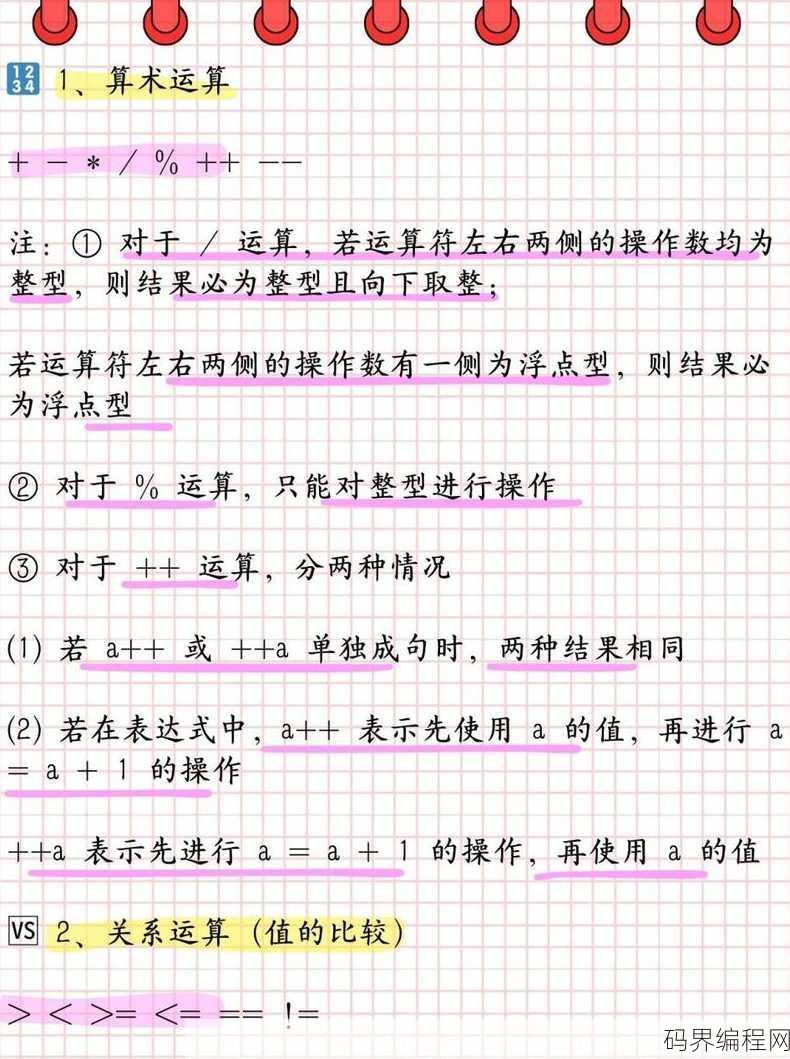 1234 1、算术运算
+ - * / % ++ --
注：① 对于 / 运算，若运算符左右两侧的操作数均为
整型，则结果必为整型且向下取整；
若运算符左右两侧的操作数有一侧为浮点型，则结果必
为浮点型
② 对于 % 运算，只能对整型进行操作
③ 对于 ++ 运算，分两种情况
(1) 若 a++ 或 ++a 单独成句时，两种结果相同
(2) 若在表达式中，a++ 表示先使用 a 的值，再进行 a
= a + 1 的操作
++a 表示先进行 a = a + 1 的操作，再使用 a 的值
VS 2、关系运算（值的比较）
> < >= <= == !=
码界编程网